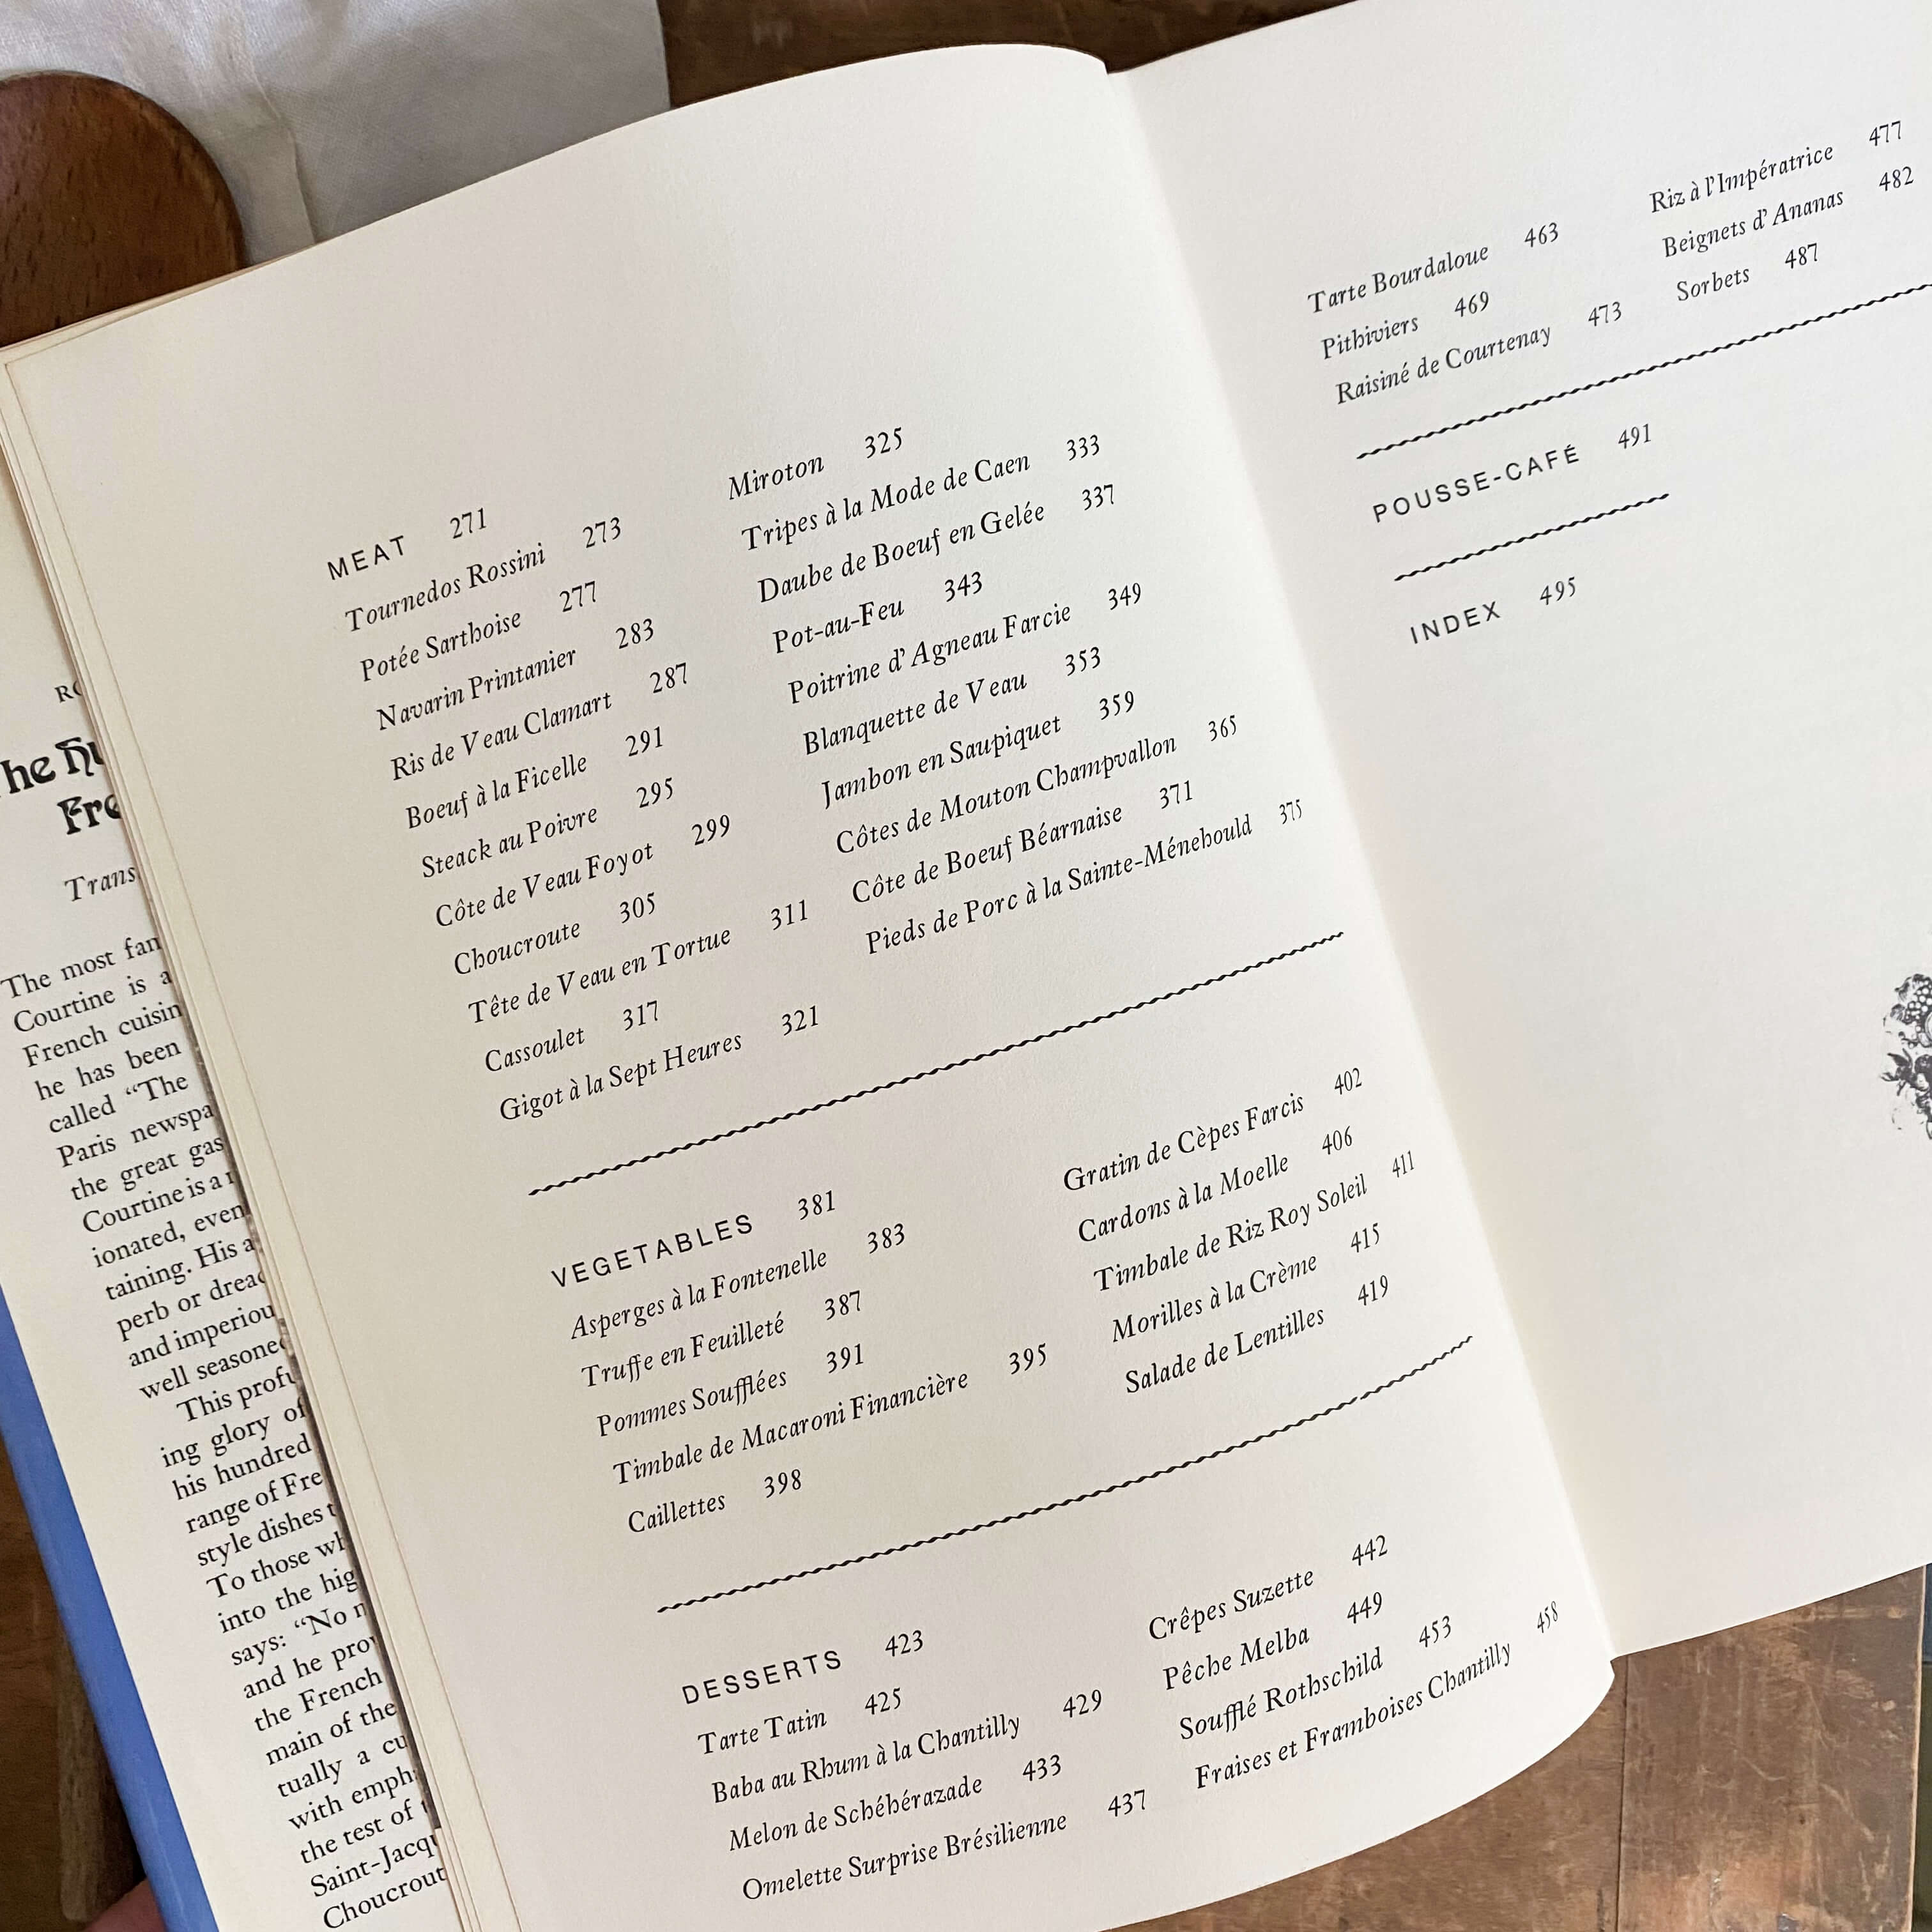 MEAT 271
Tournedos Rossini 273
Potée Sarthoise 277
Navarin Printanier 283
Ris de Veau Clamart 287
Boeuf à la Ficelle 291
Steack au Poivre 295
Côte de Veau Foyot 299
Choucroute 305
Tête de Veau en Tortue 311
Cassoulet 317
Gigot à la Sept Heures 321
Miroton 325
Tripes à la Mode de Caen 333
Daube de Boeuf en Gelée 337
Pot-au-Feu 343
Poitrine d'Agneau Farcie 349
Blanquette de Veau 353
Jambon en Saupiquet 359
Côtes de Mouton Champvallon 365
Côte de Boeuf Béarnaise 371
Pieds de Porc à la Sainte-Ménehould 375
VEGETABLES 381
Asperges à la Fontenelle 383
Truffe en Feuilleté 387
Pommes Soufflées 391
Timbale de Macaroni Financière 395
Caillettes 398
Gratin de Cèpes Farcis 402
Cardons à la Moelle 406
Timbale de Riz Roy Soleil 411
Morilles à la Crème 415
Salade de Lentilles 419
DESSERTS 423
Tarte Tatin 425
Baba au Rhum à la Chantilly 429
Melon de Schéhérazade 433
Omelette Surprise Brésilienne 437
Crêpes Suzette 442
Pêche Melba 449
Soufflé Rothschild 453
Fraises et Framboises Chantilly 458
Tarte Bourdaloue 463
Pithiviers 469
Raisiné de Courtenay 473
Riz à l'Impératrice 477
Beignets d'Ananas 482
Sorbets 487
POUSSE-CAFÉ 491
INDEX 495
The most
Courtine is
French
he has been
called "The
Paris
the great
Courtine is a
ionated, even
taining. His
perb or
and
well
This
ing glory of
his hundred
range of
style dishes
To those
into the
says: "No
and he
the French
main of the
tually a
with
the test of